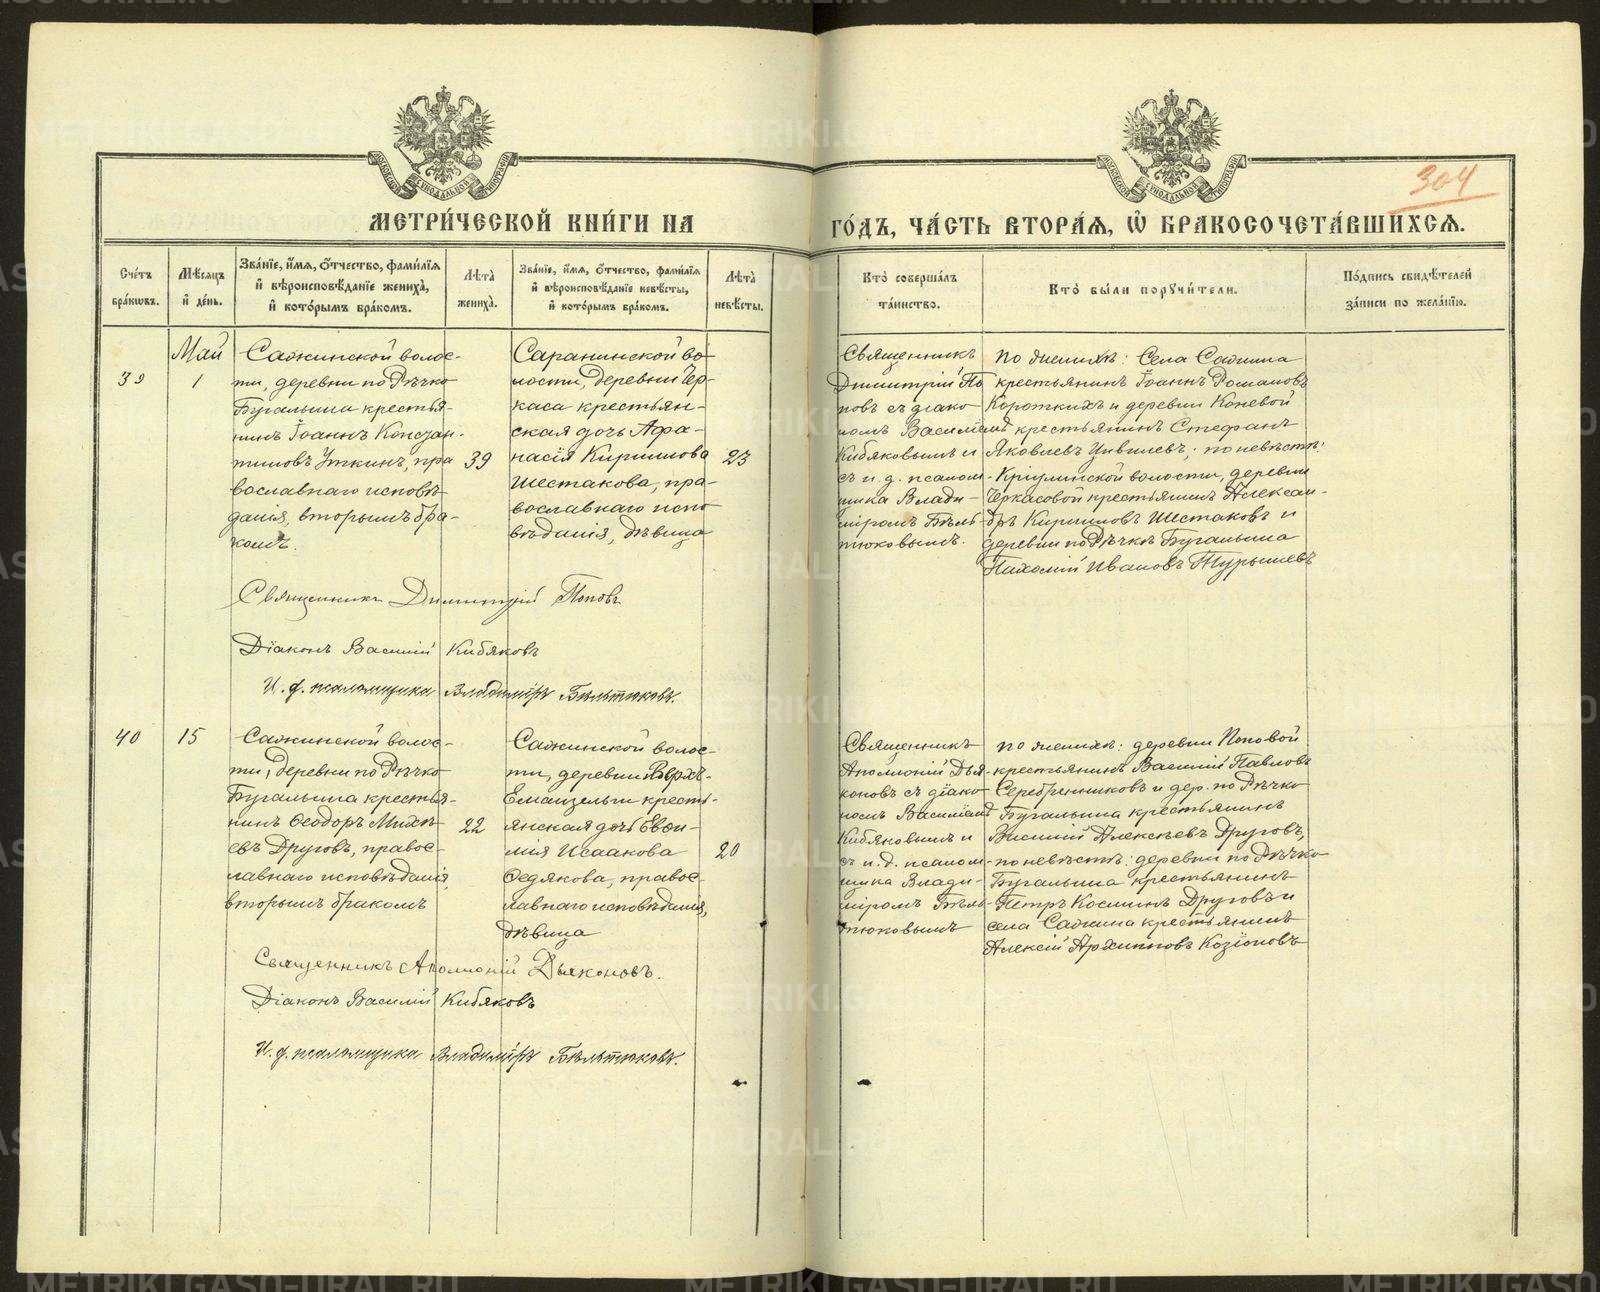 304
МЕТРИ́ЧЕСКОЙ КНИ́ГИ НА ГО́ДЪ, ЧА́СТЬ ВТОРА́Ѧ, Ѽ БРАКОСОЧЕТА́ВШИХСѦ.
Сче́тъ бра́кѡвъ.
Мѣ́сяцъ и҆ де́нь.
Зва́нїе, и҆́мѧ, ѻ҆́тчество, фами́лїѧ и҆ вѣроисповѣ́данїе жениха̀, и҆ кото́рымъ бра́комъ.
Лѣ́та̀ жениха̀.
Зва́нїе, и҆́мѧ, ѻ҆́тчество, фами́лїѧ и҆ вѣроисповѣ́данїе невѣ́сты, и҆ кото́рымъ бра́комъ.
Лѣ́та̀ невѣ́сты.
Кто̀ соверша́лъ та́инство.
Кто̀ бы́ли порꙋчи́тели.
По́дпись свидѣ́телей за́писи по жела́нїю.
39
Май
1
Сажинской волос-
ти, деревни по Рѣчко
Бугалыша крестья-
нинъ Іоаннъ Констан-
тиновъ Уткинъ, пра
вославнаго исповѣ-
данія, вторымъ бра-
комъ.
39
Саранинской во
лости, деревни Чер-
каса крестьян-
ская дочь Афа-
насія Кириллова
Шестакова, пра-
вославнаго испо
вѣданія, дѣвица
23
Священникъ
Димитрій По
повъ съ діако
номъ Василіемъ
Кибяковымъ и
съ и. д. псалом-
щика Влади-
міромъ Бѣль-
тюковымъ.
по женихѣ: Села Сажина
крестьянинъ Іоаннъ Романовъ
Короткихъ и деревни Коневой
крестьянинъ Стефанъ
Яковлевъ Цивилевъ; по невѣстѣ:
Кріулинской волости, деревни
Черкасовой крестьянинъ Алексан-
дръ Кирилловъ Шестаковъ и
деревни по Рѣчкѣ Бугалыша
Пахомій Ивановъ Турышевъ
Священникъ Димитрій Поповъ
Діаконъ Василій Кибяковъ
И. д. псаломщика Владиміръ Бѣльтюковъ.
40
15
Сажинской волос-
ти, деревни по Рѣчко
Бугалыша крестья-
нинъ Ѳеодоръ Михѣ
евъ Друговъ, правос-
лавнаго исповѣданія,
вторымъ бракомъ
22
Сажинской волос-
ти, деревни Верхъ-
Емашельги кресть-
янская дочь Евѳи-
мія Исаакова
Ѳедякова, правос-
лавнаго исповѣданія,
дѣвица
20
Священникъ
Аполлоній Дья-
коновъ съ діако
номъ Василіемъ
Кибяковымъ и
съ и. д. псалом-
щика Влади-
міромъ Бѣль-
тюковымъ
по женихѣ: деревни Поповой
крестьянинъ Василій Павловъ
Серебренниковъ и дер. по Рѣчко
Бугалыша крестьянинъ
Василій Алексѣевъ Друговъ,
по невѣстѣ: деревни по Рѣчко
Бугалыша крестьянинъ
Петръ Косминъ Друговъ и
села Сажина крестьянинъ
Алексій Архипповъ Козіоновъ
Священникъ Аполлоній Дьяконовъ.
Діаконъ Василій Кибяковъ
И. д. псаломщика Владиміръ Бѣльтюковъ.